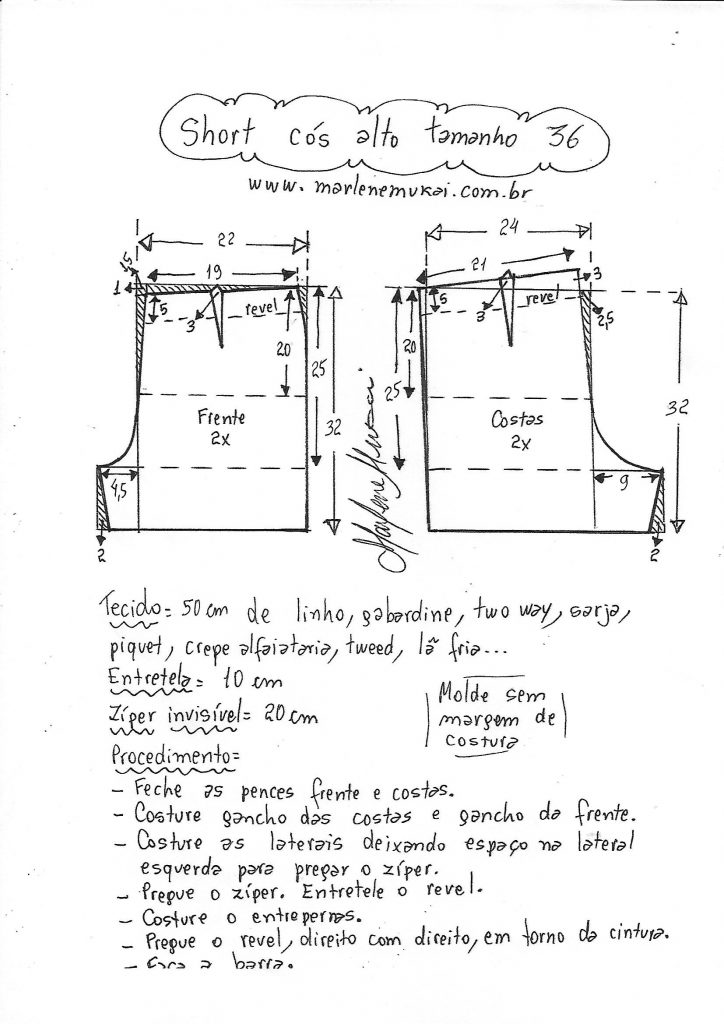 Short cós alto tamanho 36
www.marlenemukai.com.br
22
24
1,5
19
21
1
5
3
revel
20
25
32
Frente
2x
4,5
2
5
3
revel
3
2,5
20
25
32
Costas
2x
9
2
Marlene Mukai
Tecido= 50 cm de linho, gabardine, two way, sarja,
piquet, crepe alfaiataria, tweed, lã fria...
Entretela= 10 cm
Zíper invisível= 20 cm
Molde sem
margem de
costura
Procedimento=
- Feche as pences frente e costas.
- Costure gancho das costas e gancho da frente.
- Costure as laterais deixando espaço na lateral
esquerda para pregar o zíper.
- Pregue o zíper. Entretele o revel.
- Costure o entrepernas.
- Pregue o revel, direito com direito, em torno da cintura.
- Faça a barra.